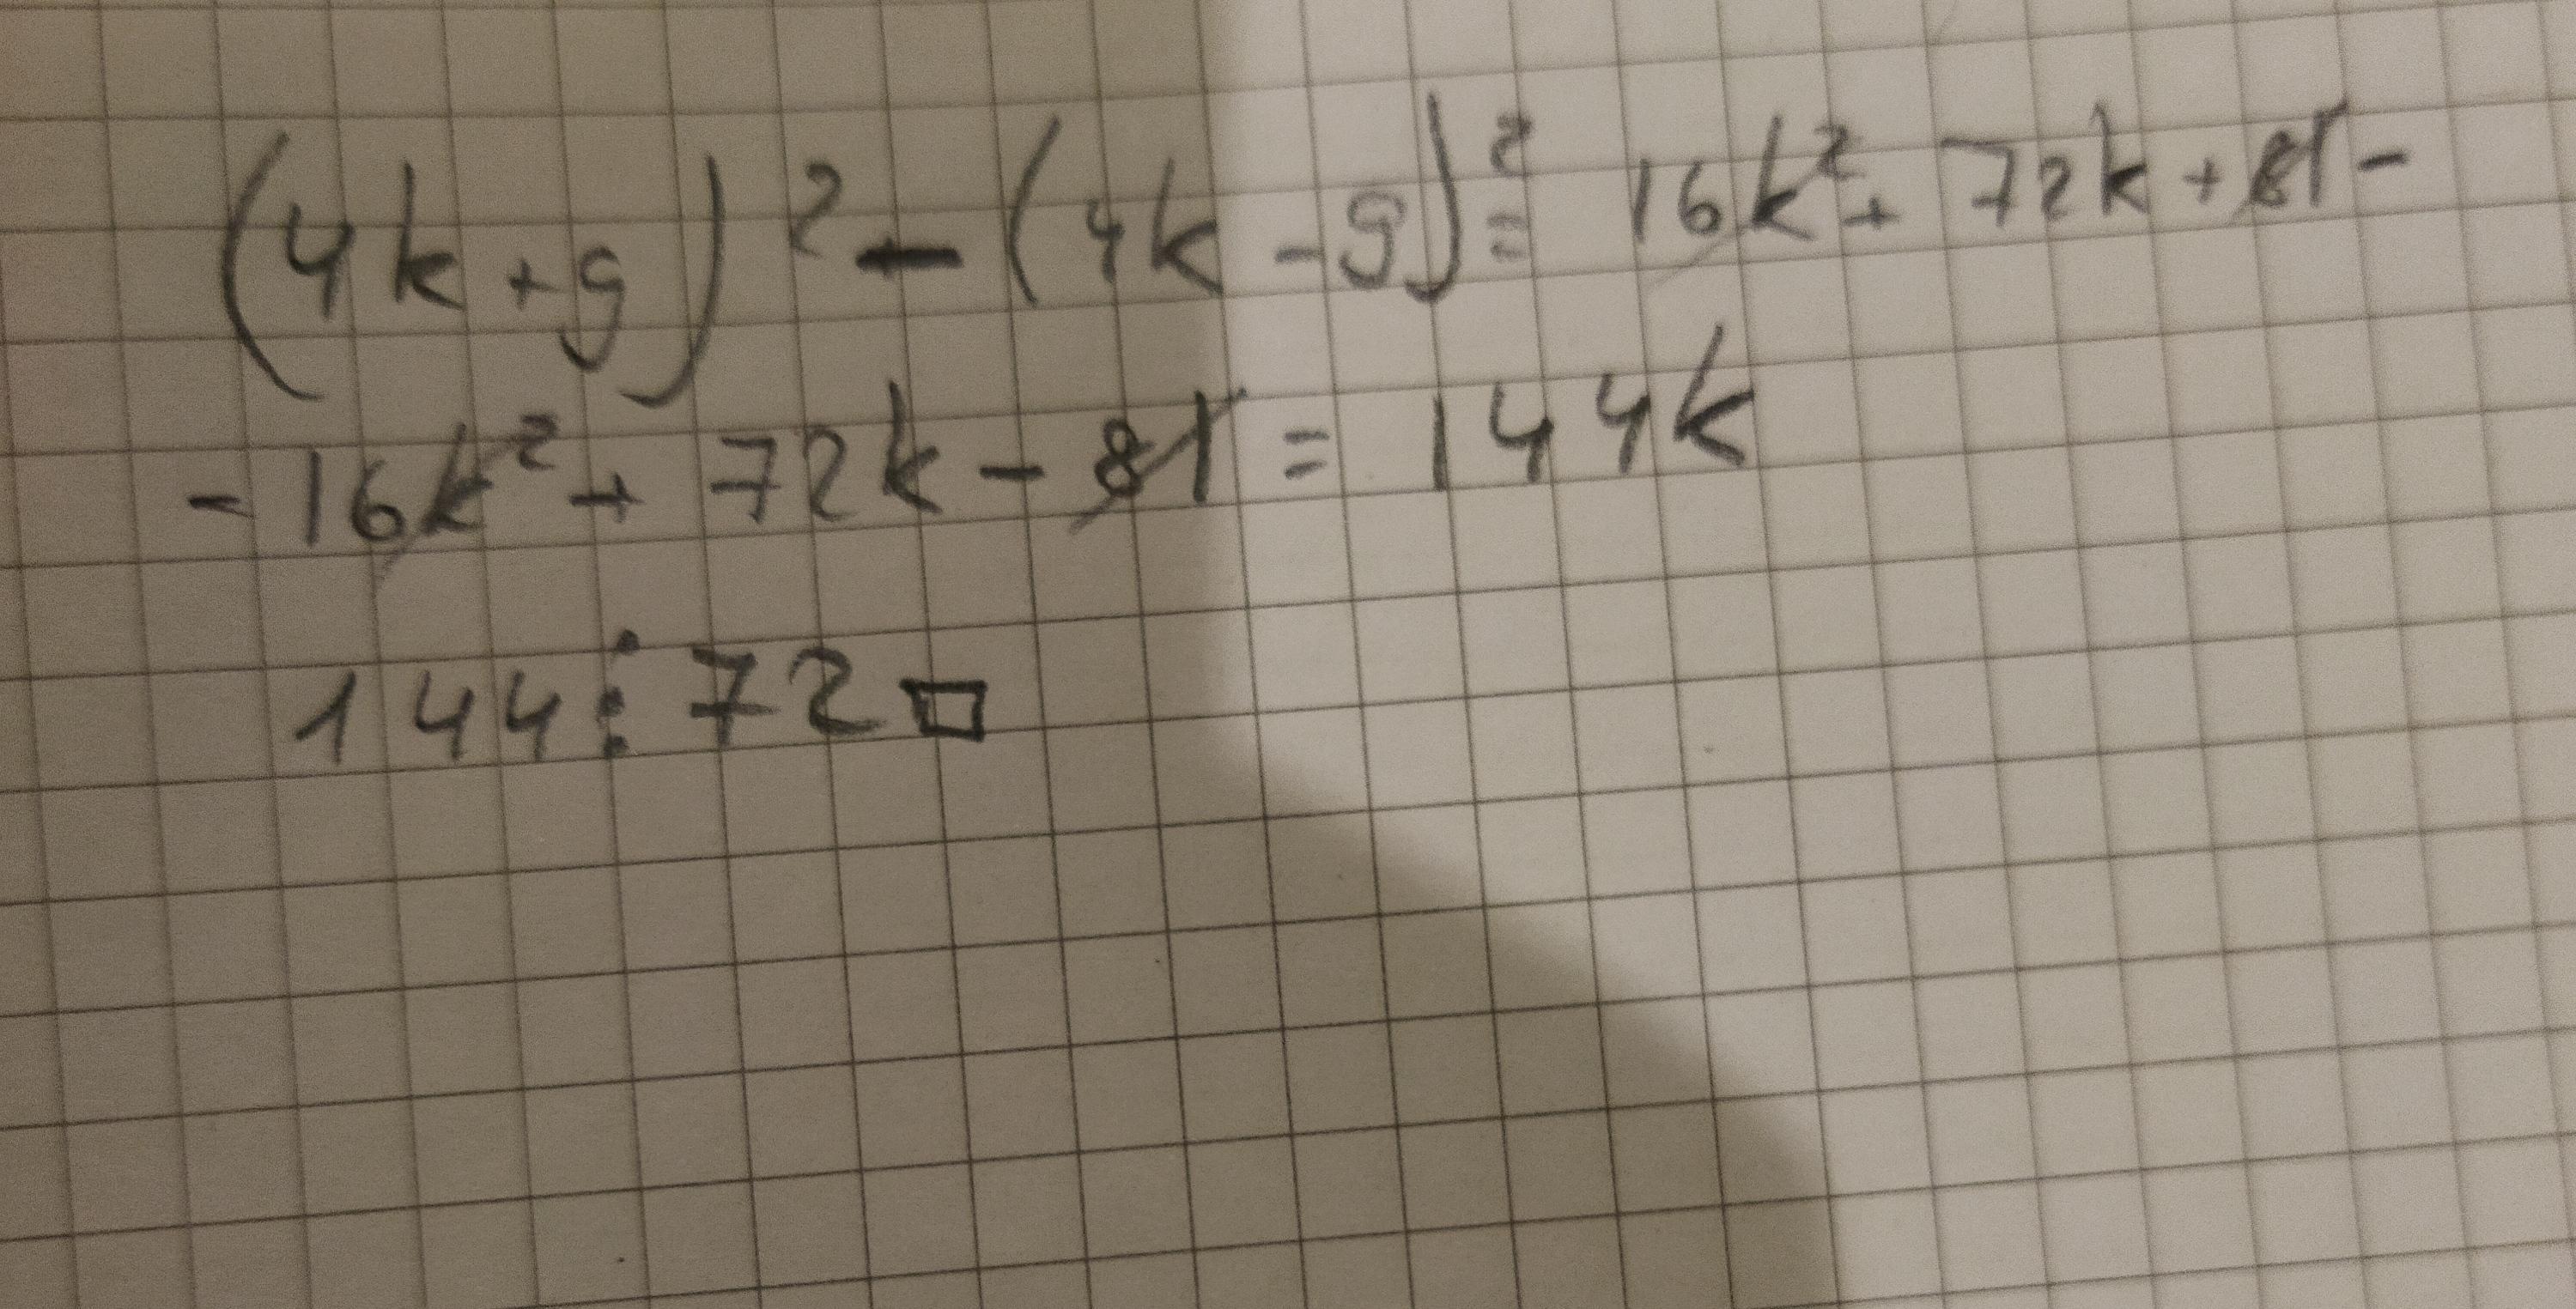 (4k+9)² − (4k−9)² = 16k² + 72k + 81 −
− 16k² + 72k − 81 = 144k
144⋮72 □